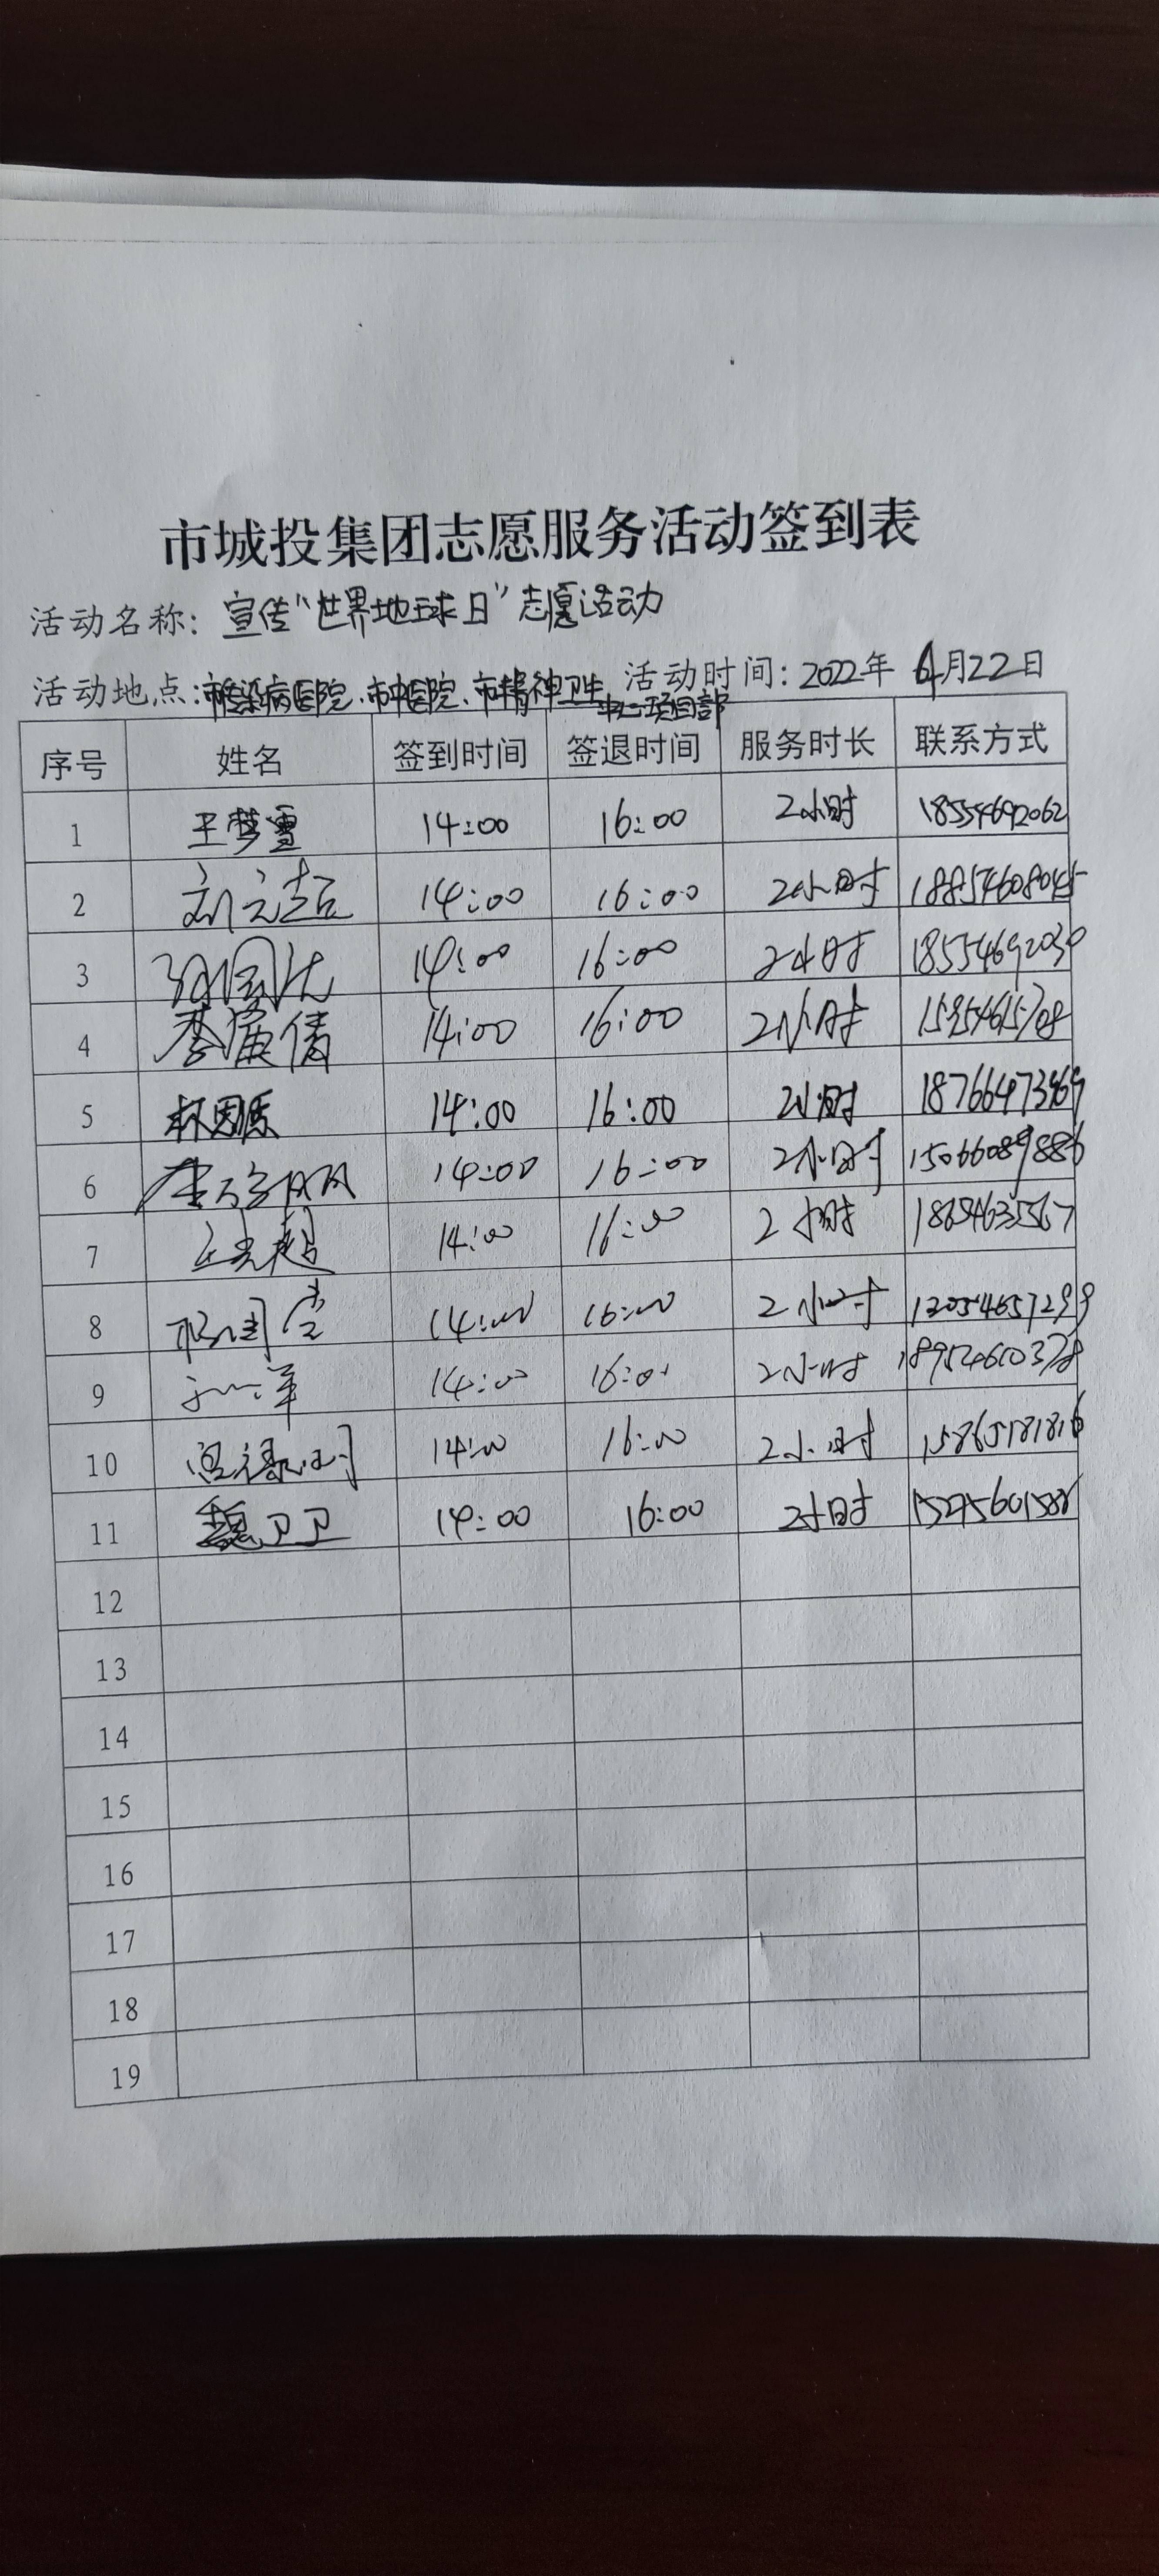 市城投集团志愿服务活动签到表
活动名称：宣传“世界地球日”志愿活动
活动地点：市传染病医院、市中医院、市精神卫生中心项目部 活动时间：2022年4月22日
序号 姓名 签到时间 签退时间 服务时长 联系方式
1 王梦雪 14:00 16:00 2小时 18554692062
2 刘元超 14:00 16:00 2小时 18854608045
3 14:00 16:00 2小时 18554692030
4 李寅倩 14:00 16:00 2小时
5 14:00 16:00 2小时 18766473969
6 14:00 16:00 2小时 15066089886
7 14:00 16:00 2小时 18654635567
8 14:00 16:00 2小时
9 14:00 16:00 2小时
10 14:00 16:00 2小时 15865181816
11 魏卫卫 14:00 16:00 2小时
12
13
14
15
16
17
18
19